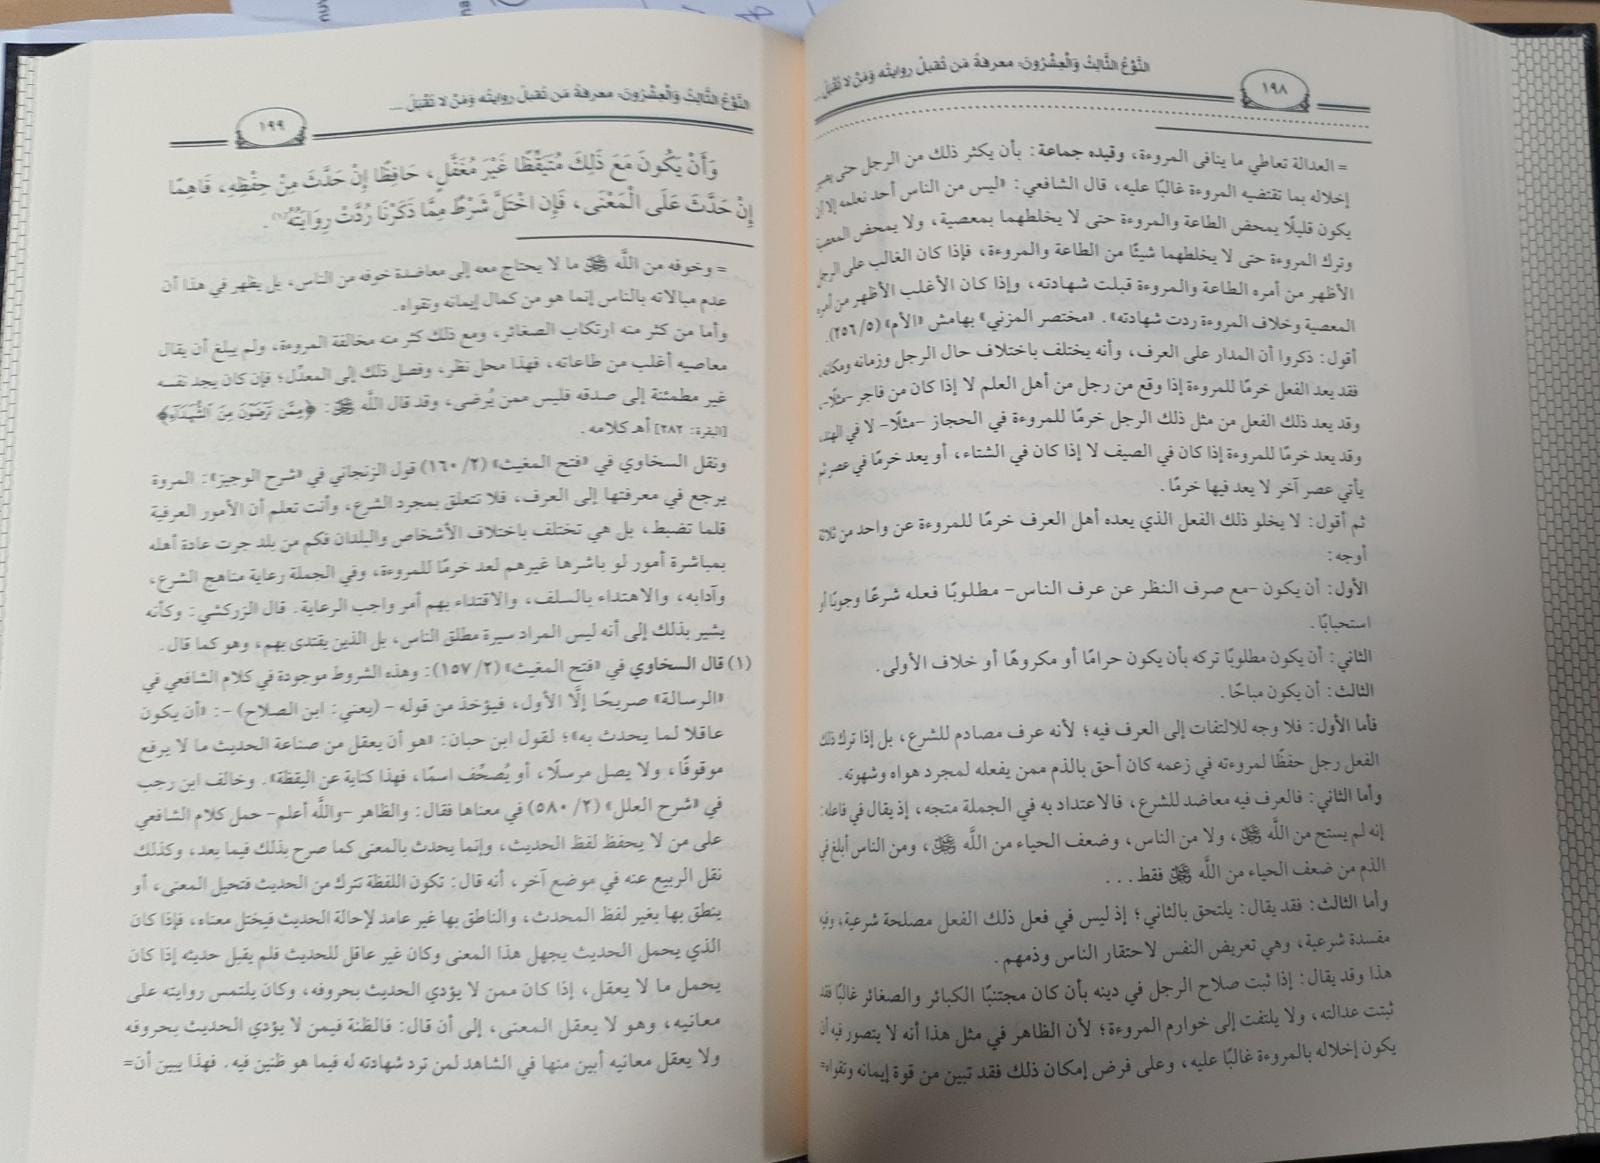 النَّوْعُ الثَّالِثُ وَالْعِشْرُونَ: معرفةُ مَن تُقبلُ روايتُه وَمَنْ لا تُقْبَلُ ...
١٩٨
= العدالة تعاطي ما ينافى المروءة، وقيده جماعة: بأن يكثر ذلك من الرجل حتى يصير
إخلاله بما تقتضيه المروءة غالبًا عليه، قال الشافعي: «ليس من الناس أحد نعلمه إلا أن
يكون قليلًا يمحض الطاعة والمروءة حتى لا يخلطهما بمعصية، ولا يمحض المعصية
وترك المروءة حتى لا يخلطهما شيئًا من الطاعة والمروءة، فإذا كان الغالب على الرجل
الأظهر من أمره الطاعة والمروءة قبلت شهادته، وإذا كان الأغلب الأظهر من أمره
المعصية وخلاف المروءة ردت شهادته». «مختصر المزني» بهامش «الأم» (٥/ ٢٥٦).
أقول: ذكروا أن المدار على العرف، وأنه يختلف باختلاف حال الرجل وزمانه ومكانه،
فقد يعد الفعل خرمًا للمروءة إذا وقع من رجل من أهل العلم لا إذا كان من فاجر -مثلًا-،
وقد يعد ذلك الفعل من مثل ذلك الرجل خرمًا للمروءة في الحجاز -مثلًا- لا في الهند،
وقد يعد خرمًا للمروءة إذا كان في الصيف لا إذا كان في الشتاء، أو يعد خرمًا في عصر ثم
يأتي عصر آخر لا يعد فيها خرمًا.
ثم أقول: لا يخلو ذلك الفعل الذي يعده أهل العرف خرمًا للمروءة عن واحد من ثلاثة
أوجه:
الأول: أن يكون -مع صرف النظر عن عرف الناس- مطلوبًا فعله شرعًا وجوبًا أو
استحبابًا.
الثاني: أن يكون مطلوبًا تركه بأن يكون حرامًا أو مكروهًا أو خلاف الأولى.
الثالث: أن يكون مباحًا.
فأما الأول: فلا وجه للالتفات إلى العرف فيه؛ لأنه عرف مصادم للشرع، بل إذا ترك ذلك
الفعل رجل حفظًا لمروءته في زعمه كان أحق بالذم ممن يفعله لمجرد هواه وشهوته.
وأما الثاني: فالعرف فيه معاضد للشرع، فالاعتداد به في الجملة متجه، إذ يقال في فاعله:
إنه لم يستح من اللَّه ﷻ، ولا من الناس، وضعف الحياء من اللَّه ﷻ، ومن الناس أبلغ في
الذم من ضعف الحياء من اللَّه ﷻ فقط...
وأما الثالث: فقد يقال: يلتحق بالثاني؛ إذ ليس في فعل ذلك الفعل مصلحة شرعية، وفيه
مفسدة شرعية، وهي تعريض النفس لاحتقار الناس وذمهم.
هذا وقد يقال: إذا ثبت صلاح الرجل في دينه بأن كان مجتنبًا الكبائر والصغائر غالبًا فقد
ثبتت عدالته، ولا يلتفت إلى خوارم المروءة؛ لأن الظاهر في مثل هذا أنه لا يتصور فيه أن
يكون إخلاله بالمروءة غالبًا عليه، وعلى فرض إمكان ذلك فقد تبين من قوة إيمانه وتقواه=
النَّوْعُ الثَّالِثُ وَالْعِشْرُونَ: معرفةُ مَن تُقبلُ روايتُه وَمَنْ لا تُقْبَلُ ...
١٩٩
وَأَنْ يَكُونَ مَعَ ذَلِكَ مُتَيَقِّظًا غَيْرَ مُغَفَّلٍ، حَافِظًا إِنْ حَدَّثَ مِنْ حِفْظِهِ، فَاهِمًا
إِنْ حَدَّثَ عَلَى الْمَعْنَى، فَإِن اخْتَلَّ شَرْطٌ مِمَّا ذَكَرْنَا رُدَّتْ رِوَايَتُهُ(١).
= وخوفه من اللَّه ﷻ ما لا يحتاج معه إلى معاضدة خوفه من الناس، بل يظهر في هذا أن
عدم مبالاته بالناس إنما هو من كمال إيمانه وتقواه.
وأما من كثر منه ارتكاب الصغائر، ومع ذلك كثر منه مخالفة المروءة، ولم يبلغ أن يقال
معاصيه أغلب من طاعاته، فهذا محل نظر، وفصل ذلك إلى المعدِّل؛ فإن كان يجد نفسه
غير مطمئنة إلى صدقه فليس ممن يُرضى، وقد قال اللَّه ﷻ: ﴿مِمَّن تَرْضَوْنَ مِنَ الشُّهَدَاءِ﴾
[البقرة: ٢٨٢] أهـ كلامه.
ونقل السخاوي في «فتح المغيث» (٢/ ١٦٠) قول الزنجاني في «شرح الوجيز»: المروة
يرجع في معرفتها إلى العرف، فلا تتعلق بمجرد الشرع، وأنت تعلم أن الأمور العرفية
قلما تضبط، بل هي تختلف باختلاف الأشخاص والبلدان فكم من بلد جرت عادة أهله
بمباشرة أمور لو باشرها غيرهم لعد خرمًا للمروءة، وفي الجملة رعاية مناهج الشرع،
وآدابه، والاهتداء بالسلف، والاقتداء بهم أمر واجب الرعاية. قال الزركشي: وكأنه
يشير بذلك إلى أنه ليس المراد سيرة مطلق الناس، بل الذين يقتدى بهم، وهو كما قال.
(١) قال السخاوي في «فتح المغيث» (٢/ ١٥٧): وهذه الشروط موجودة في كلام الشافعي في
«الرسالة» صريحًا إلَّا الأول، فيؤخذ من قوله - (يعني: ابن الصلاح) -: «أن يكون
عاقلا لما يحدث به»؛ لقول ابن حبان: «هو أن يعقل من صناعة الحديث ما لا يرفع
موقوفًا، ولا يصل مرسلًا، أو يُصحِّف اسمًا، فهذا كناية عن اليقظة». وخالف ابن رجب
في «شرح العلل» (٢/ ٥٨٠) في معناها فقال: والظاهر -واللَّه أعلم- حمل كلام الشافعي
على من لا يحفظ لفظ الحديث، وإنما يحدث بالمعنى كما صرح بذلك فيما بعد، وكذلك
نقل الربيع عنه في موضع آخر، أنه قال: تكون اللفظة تترك من الحديث فتحيل المعنى، أو
ينطق بها بغير لفظ المحدث، والناطق بها غير عامد لإحالة الحديث فيختل معناه، فإذا كان
الذي يحمل الحديث يجهل هذا المعنى وكان غير عاقل للحديث فلم يقبل حديثه إذا كان
يحمل ما لا يعقل، إذا كان ممن لا يؤدي الحديث بحروفه، وكان يلتمس روايته على
معانيه، وهو لا يعقل المعنى، إلى أن قال: فالظنة فيمن لا يؤدي الحديث بحروفه
ولا يعقل معانيه أبين منها في الشاهد لمن ترد شهادته له فيما هو ظنين فيه. فهذا يبين أن=